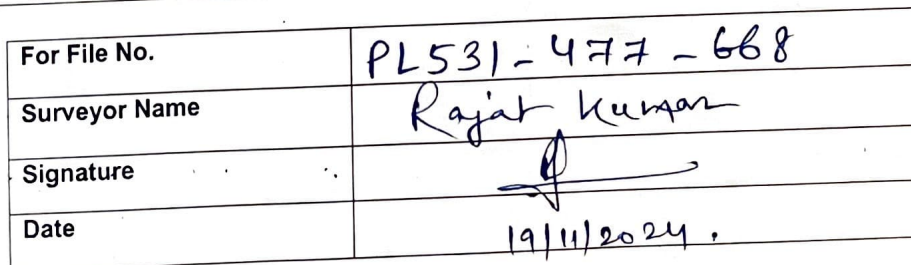 For File No. PL531-477-668
Surveyor Name Rajat Kumar
Signature
Date 19/11/2024.